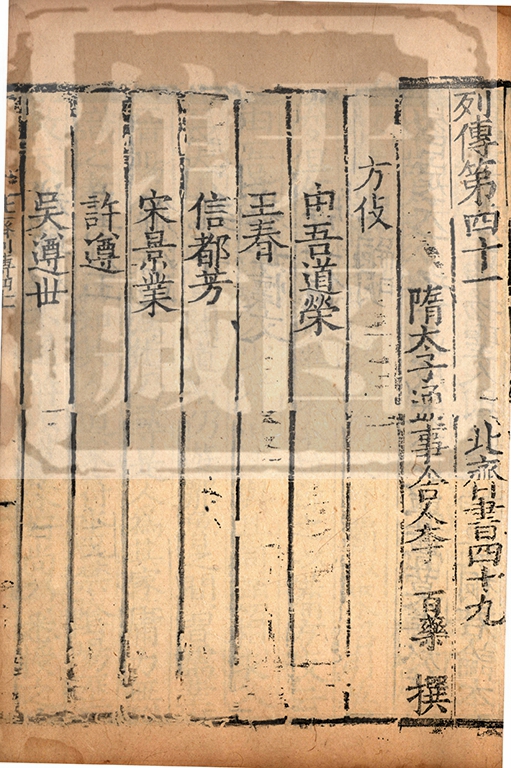 列傳第四十一 北齊書四十九
隋太子通事舍人李 百藥 撰
方伎
由吾道榮
王春
信都芳
宋景業
許遵
吳遵世